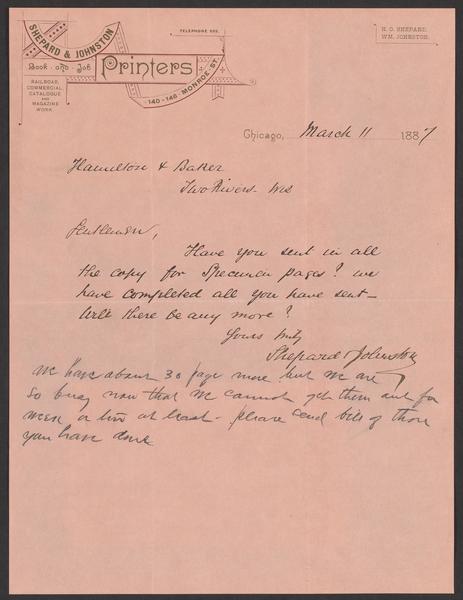 SHEPARD & JOHNSTON
Book and Job
Printers
RAILROAD,
COMMERCIAL,
CATALOGUE
AND
MAGAZINE
WORK.
TELEPHONE 555.
140-146 MONROE ST.
H. O. SHEPARD.
WM. JOHNSTON.
Chicago, March 11 1887
Hamilton & Baker
Two Rivers Wis
Gentlemen,
Have you sent in all
the copy for Specimen pages? we
have completed all you have sent—
Will there be any more?
Yours truly
Shepard & Johnston
We have about 30 page more but we are
so busy now that we cannot get them out for
week or two at least - please send bill of those
you have done